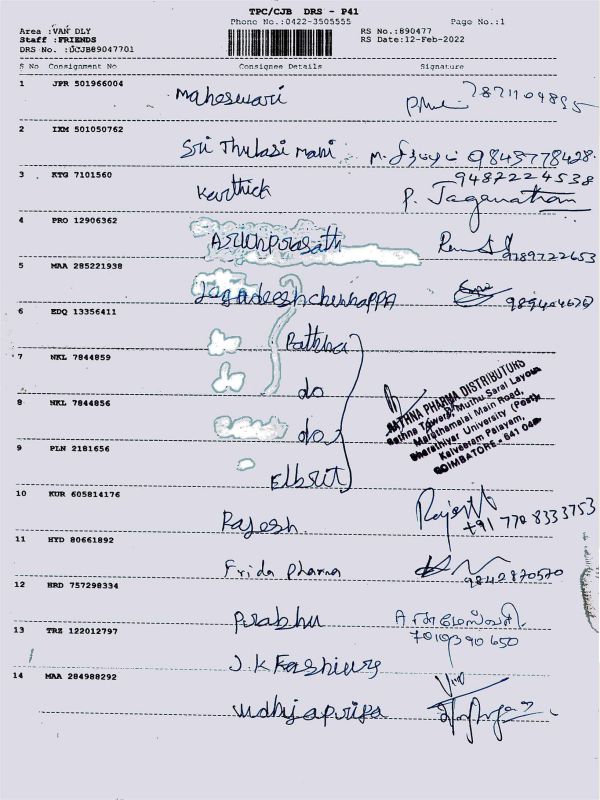 TPC/CJB DRS - P41
Phone No.:0422-3505555 Page No.:1
Area :VAN DLY RS No.:890477
Staff :FRIENDS RS Date:12-Feb-2022
DRS No. :DCJB89047701
S No Consignment No Consignee Details Signature
1 JPR 501966004 Maheswari 7871104895
2 IXM 501050762 Sri Thulasi Mani 9843778428
3 KTG 7101560 Karthick 9487224538
P. Jaganathan
4 PRO 12906362 Arunprasath 9789722653
5 MAA 285221938 Jagadeesh chennappa
6 EDQ 13356411 Rathna
7 NKL 7844859 do
8 NKL 7844856 do
SATHNA PHARMA DISTRIBUTORS
Sathna Towers, Muthu Saral Layout
Maruthamalai Main Road,
Bharathiyar University (Post)
Kalveeram Palayam,
COIMBATORE - 641 046
9 PLN 2181656 Elbrit
10 KUR 605814176 Rajesh Rajesh
+91 770 8333753
11 HYD 80661892 Frida pharma 9842870570
12 HRD 757298334 Prabhu
7010390650
13 TRZ 122012797 J.K Fashions
14 MAA 284988292 Vidhyapriya